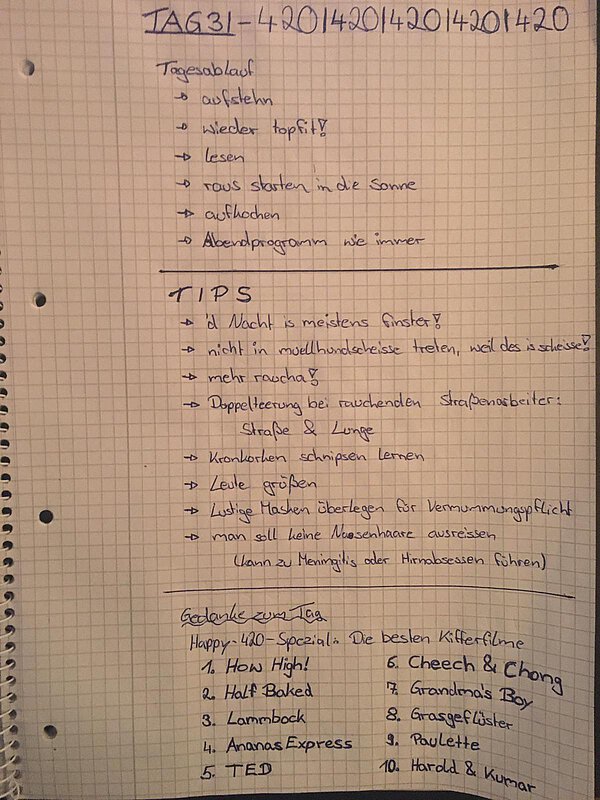 TAG31 - 420/420/420/420/420
Tagesablauf
→ aufstehn
→ wieder topfit!
→ lesen
→ raus starten in die Sonne
→ aufkochen
→ Abendprogramm wie immer
TIPS
→ 'd Nacht is meistens finster!
→ nicht in muellhundscheisse treten, weil des is scheisse!
→ mehr raucha!
→ Doppelteerung bei rauchenden Straßenarbeiter:
Straße & Lunge
→ Kronkorken schnipsen lernen
→ Leute größen
→ Lustige Masken überlegen für Vermummungspflicht
→ man soll keine Nasenhaare ausreissen
(kann zu Meningitis oder Hirnabsessen führen)
Gedanke zum Tag
Happy-420-Spezial: Die besten Kifferfilme
1. How High!
2. Half Baked
3. Lammbock
4. Ananas Express
5. TED
6. Cheech & Chong
7. Grandma's Boy
8. Grasgeflüster
9. Paulette
10. Harold & Kumar